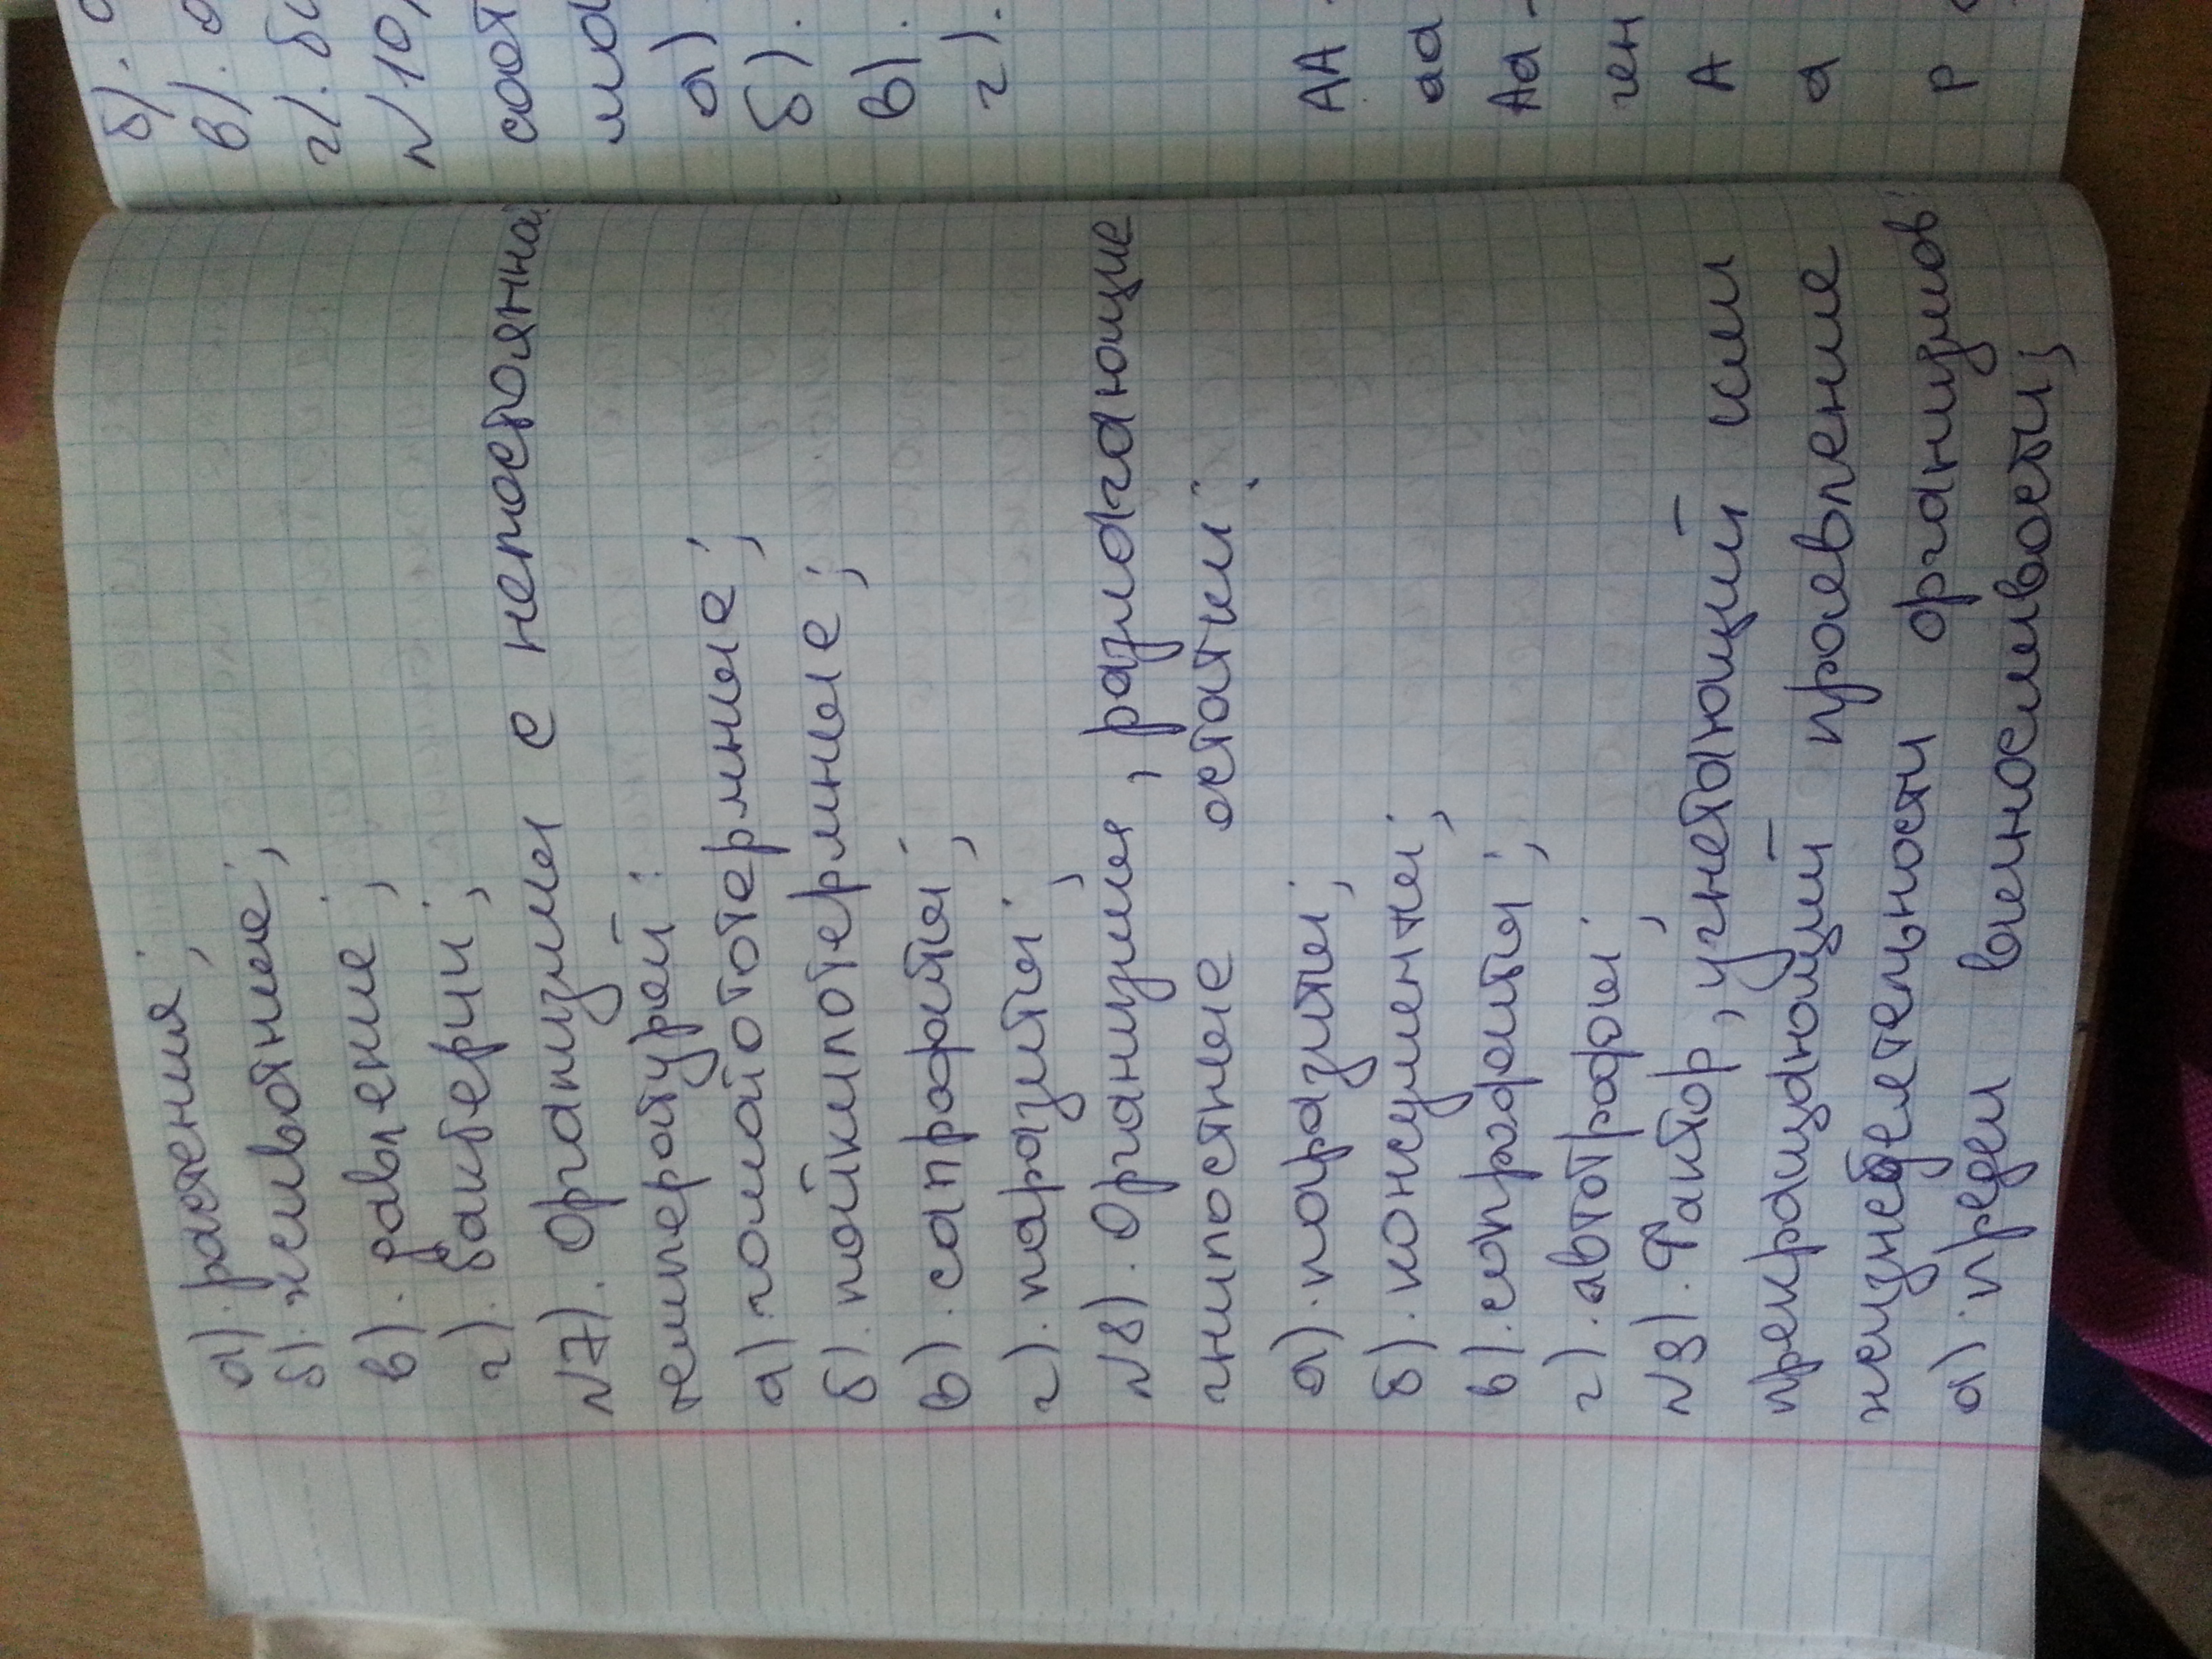 а). растения;
б). животные;
в). давление;
г). бактерии;
№7). Организмы с непостоянной
температурой:
а) гомойототермные;
б). пойкилотермные;
в). сапрофиты;
г). паразиты;
№8). Организмы, разлагающие
гнилостные остатки:
а). паразиты;
б). консументы;
в). сапрофиты;
г). автотрофы;
№9). Фактор, угнетающий или
прекращающий проявление
жизнедеятельности организмов:
а). предел выносливости;
б).
в).
г).
№10,
а)
б).
в).
г).
АА
аа
Аа -
ген
А
а
Р